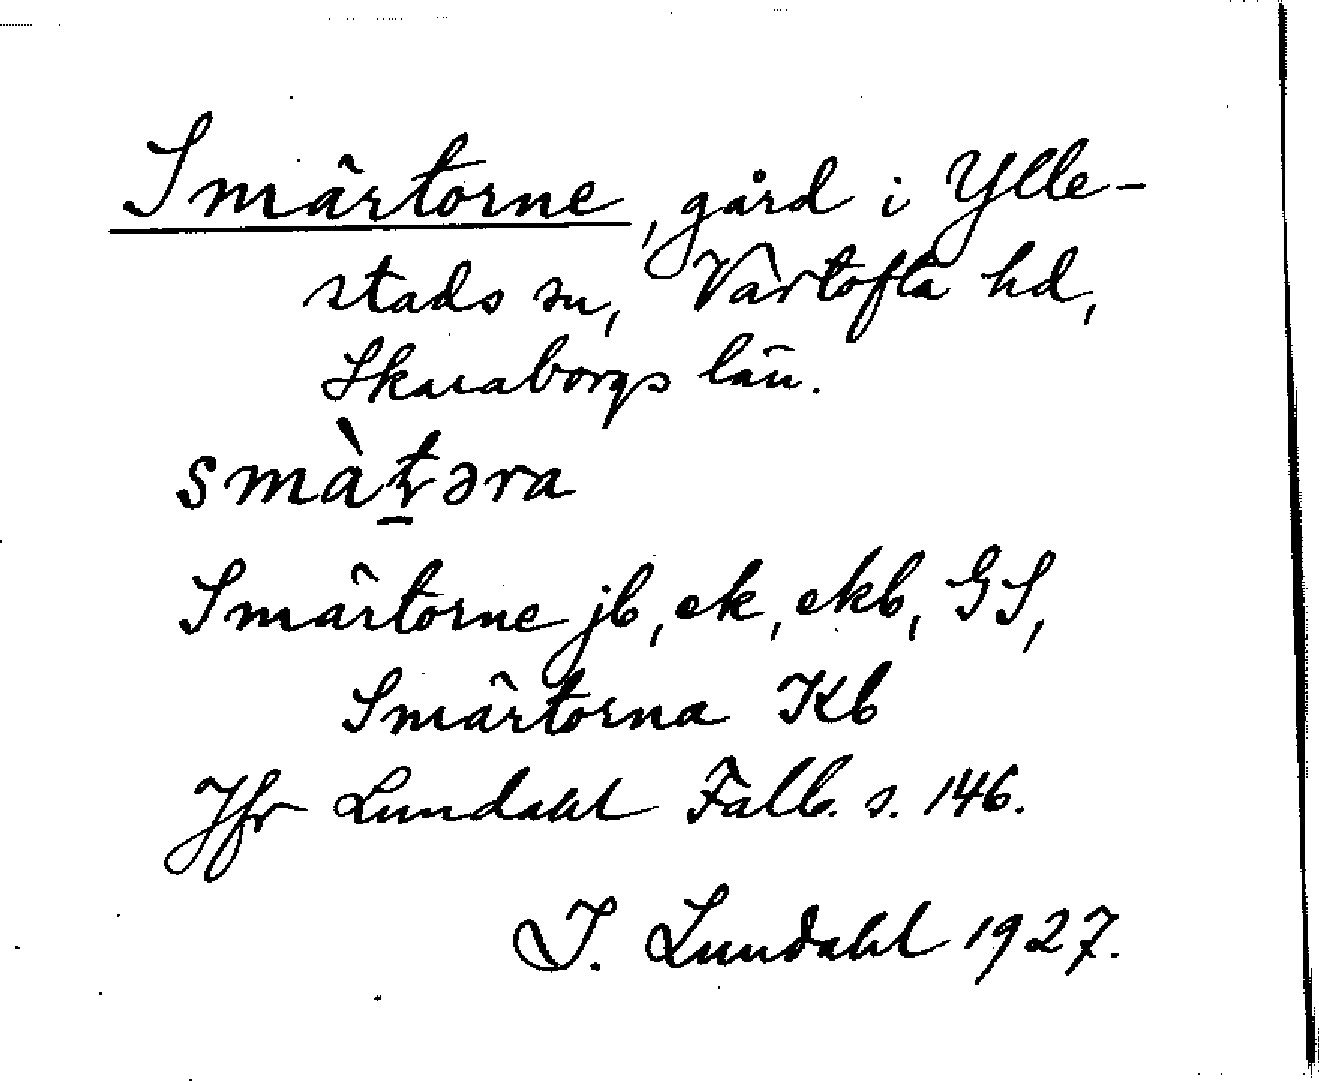 Smärtorne, gård i Ylle-
stads sn, Vartofta hd,
Skaraborgs län.
smàt̠əra
Smärtorne jb, ek, ekb, GS,
Smärtorna Kb
Jfr Lundahl Falb. s. 146.
I. Lundahl 1927.